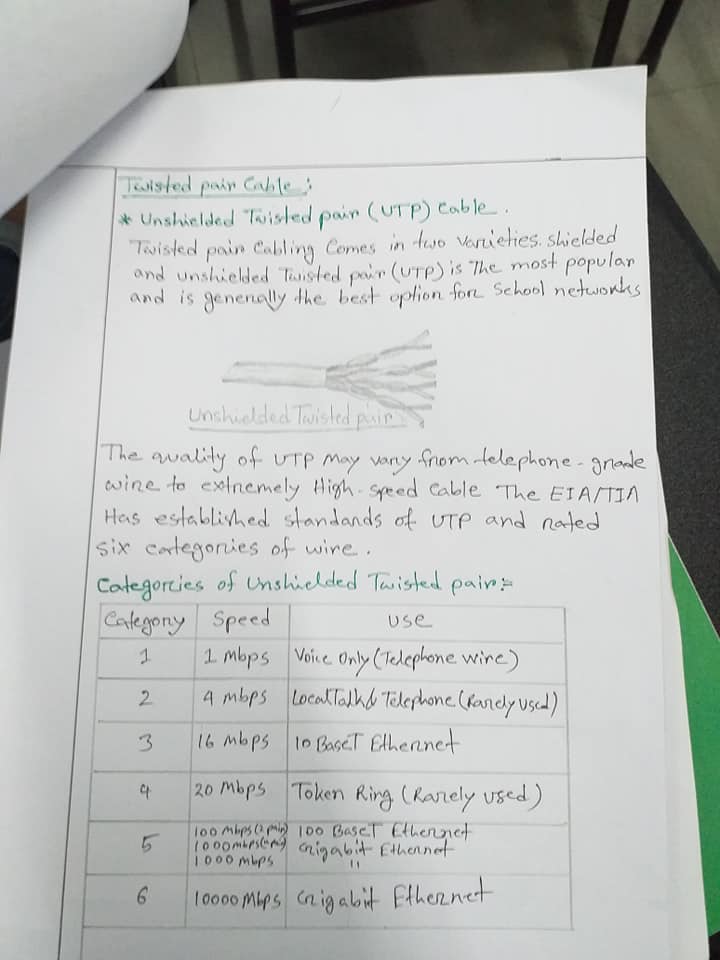 Twisted pair Cable :
* Unshielded Twisted pair (UTP) Cable .
Twisted pair Cabling Comes in two Varieties. shielded
and unshielded Twisted pair (UTP) is The most popular
and is generally the best option for School networks
Unshielded Twisted pair
The quality of UTP may vary from telephone - grade
wire to extremely High - speed Cable The EIA/TIA
Has established standands of UTP and rated
six categories of wire .
Categories of Unshielded Twisted pair :-
Category Speed use
1 1 Mbps Voice Only (Telephone wire)
2 4 mbps LocalTalk & Telephone (Rarely used)
3 16 mbps 10 BaseT Ethernet
4 20 Mbps Token Ring (Rarely used)
5 100 mbps (2 pair) 100 BaseT Ethernet
1000mbps Gigabit Ethernet
1000 mbps "
6 10000 Mbps Gigabit Ethernet